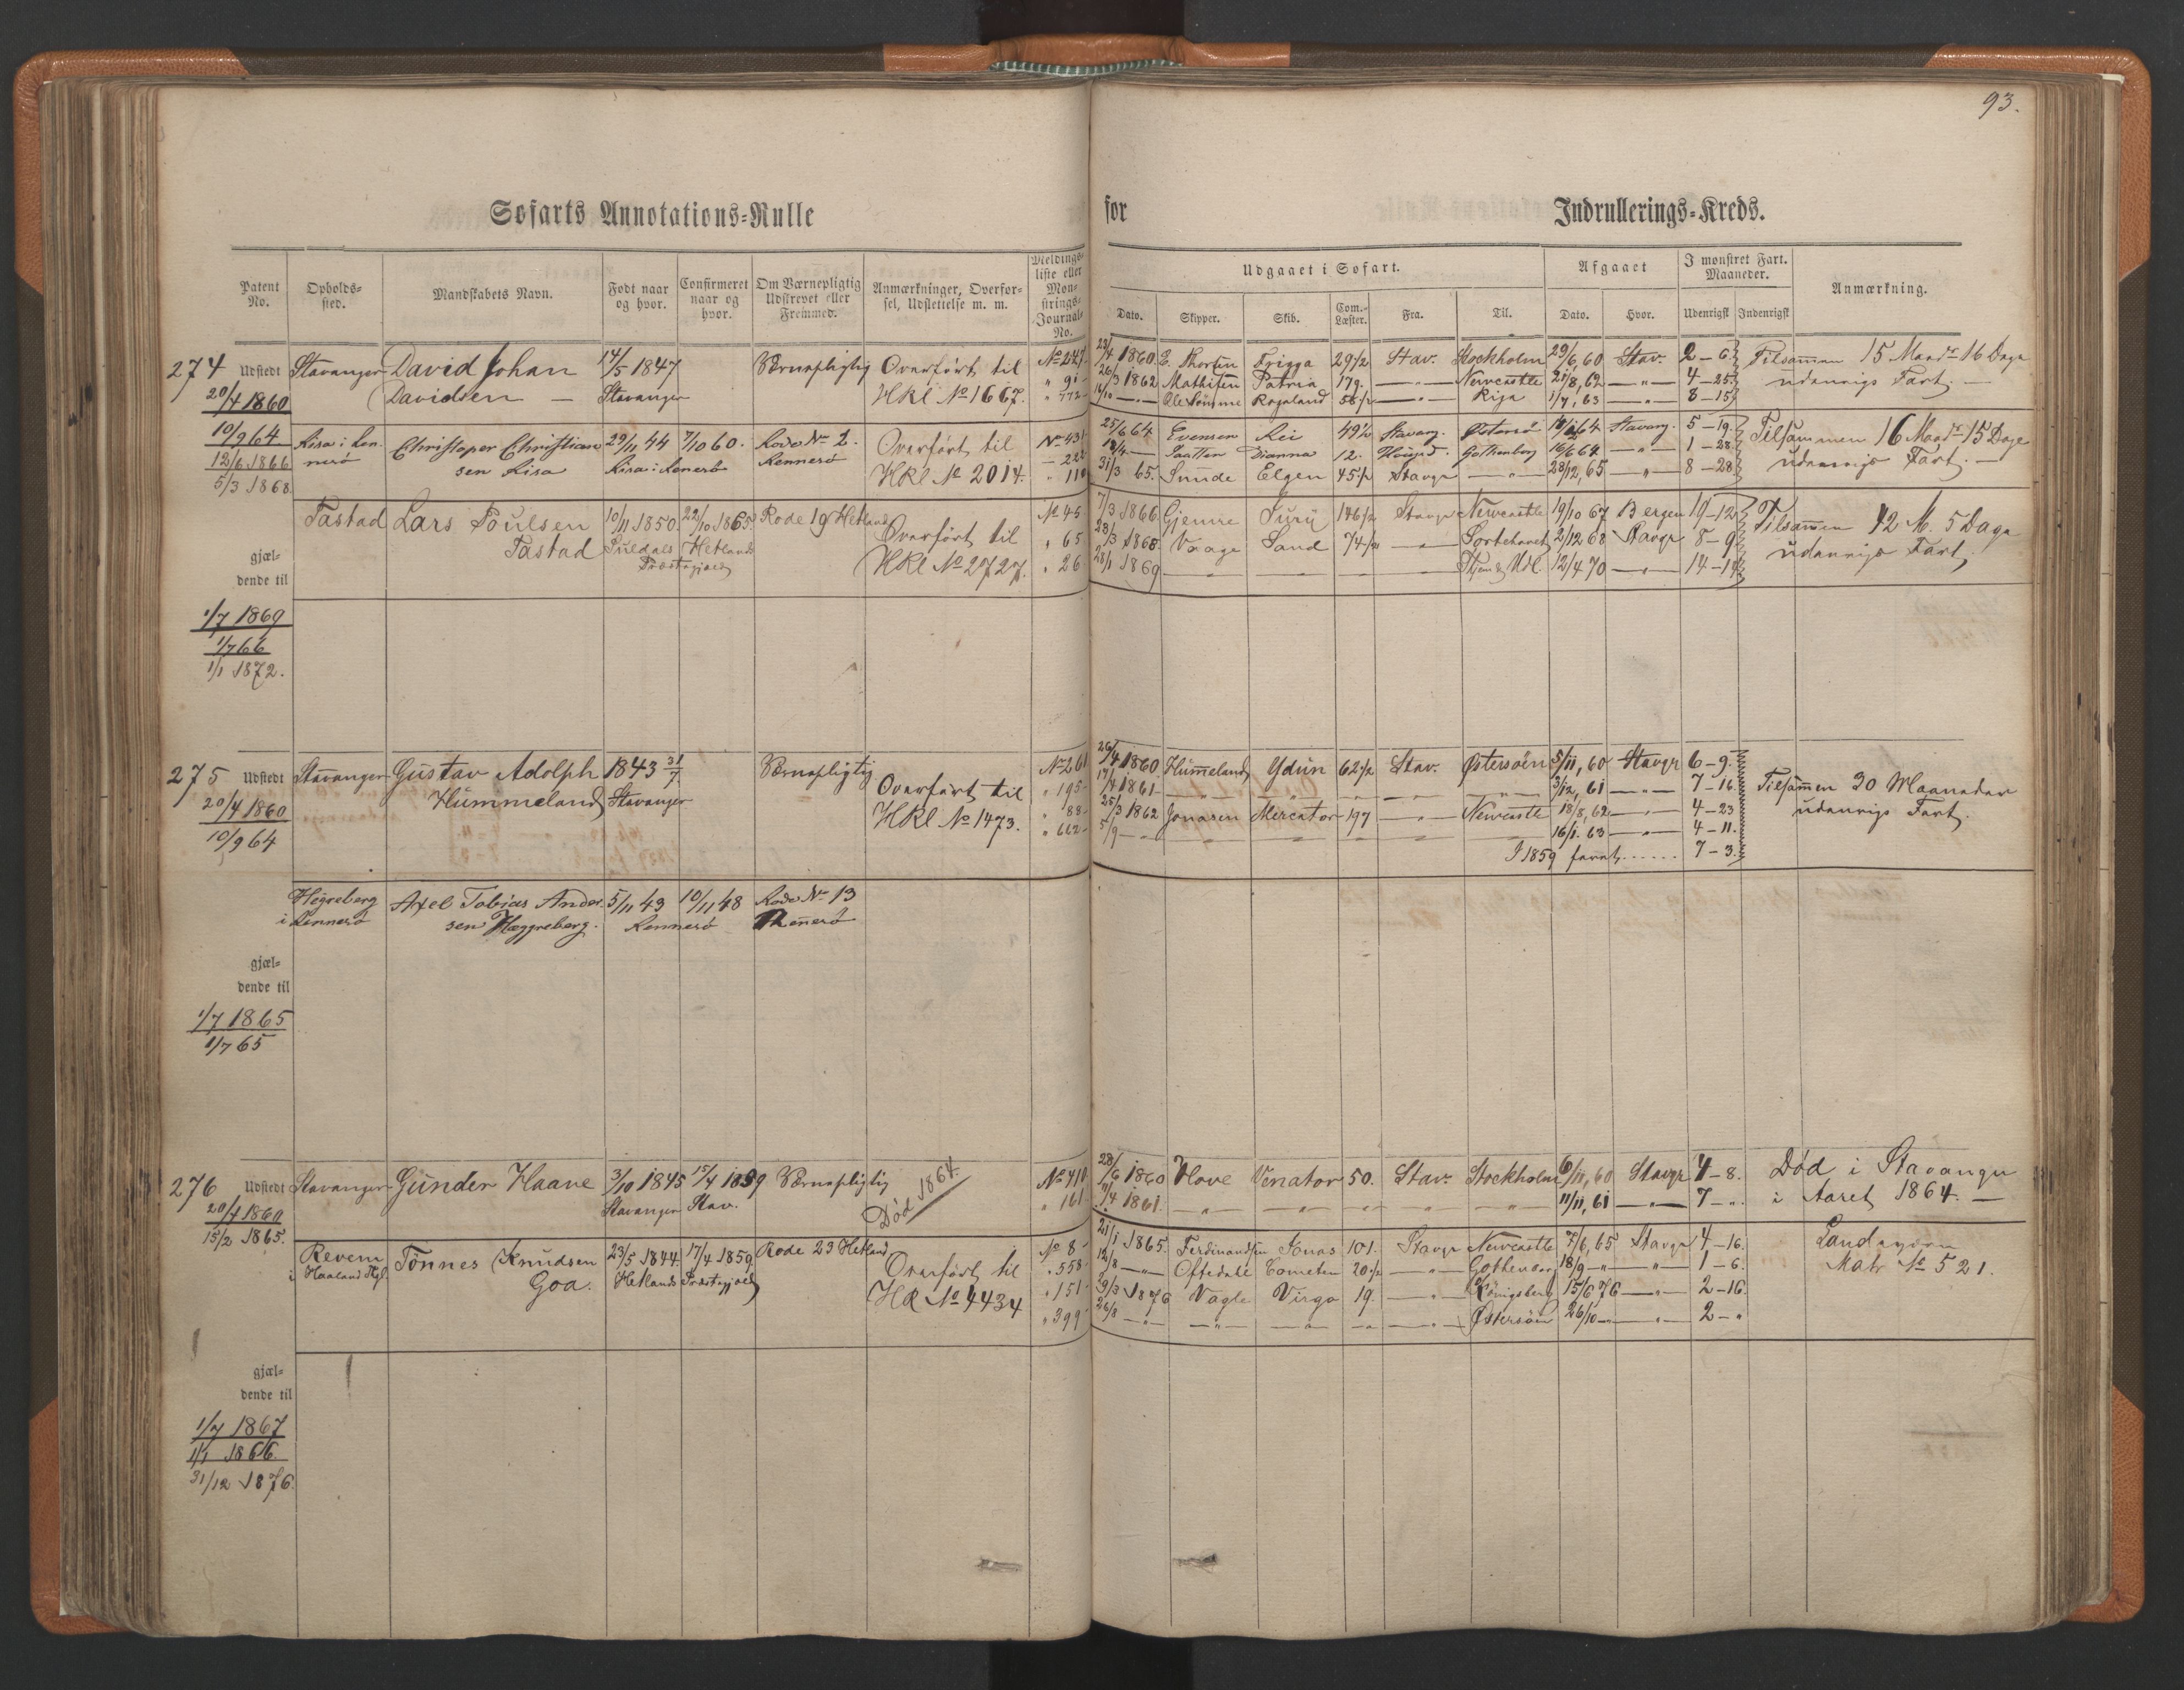 93.
Søfarts Annotations=Rulle for Indrullerings=Kreds.
Patent No. Opholds-sted. Mandskabets Navn. Født naar og hvor. Confirmeret naar og hvor. Om Værnepligtig Udskrevet eller Fremmed. Anmærkninger, Overførsel, Udslettelse m. m. Meldings-liste eller Mønstrings-Journal-No.
Udgaaet i Søfart. Afgaaet I mønstret Fart. Maaneder. Anmærkning.
Dato. Skipper. Skib. Com.-Læster. Fra. Til. Dato. Hvor. Udenrigst Indenrigst
274 Udstedt Stavanger David Johan 14/5 1847 Værnepligtig Overført til No 247 23/4 1860 E. Thorsen Frigga 29 1/2 Stav. Stockholm 29/6, 60 Stav. 2–6 Tilsammen 15 Maadr 16 Dage
20/4 1860 Davidsen — Stavanger HRl No 1667. " 91 26/3 1862 Mathisen Patria 179. —"— Newcastle 21/8, 62 —"— 4–25 udenrigs Fart. —
" 772 16/10 —"— Ole Rogaland 58 1/2 —"— Riga 1/7, 63 —"— 8–15
10/9 64 Risa i Ren- Christoper Christian 29/11 44 7/10 60. Rode No 2. Overført til No 431 25/6 64 Evensen Rei 49 1/2 Stavang. Østersø 64 Stavang. 5–19 Tilsammen 16 Maadr 15 Dage
12/6 1866 nesø sen Risa Risa i Rennesø Rennesø HRl No 2014. — 222 12. Gothenborg 16/6 64 —"— 1–28 udenrigs Fart. —
5/3 1868. " 110 31/3 65. Sunde Elgen 45 1/2 Stavgr —"— 28/12, 65 —"— 8–28
Tastad Lars Poulsen 10/11 1850. 22/10 1865 Rode 19 Hetland Overført til No 45 7/3 1866 Gjemre Juru 146 1/2 Stavgr Newcastle 19/10 67 Bergen 19–12 Tilsammen 42 M. 5 Dage
Tastad Suldals Hetlands " 65 28/3 1868. Vaage Sand 74 1/2 —"— Sortehavet 2/12 68 Stavgr 8–9 udenrigs Fart.
Præstegjæld HRl No 2727. " 26 28/1 1869 —"— —"— —"— 12/4 70 —"— 14–14
gjæl-
dende til
1/7 1869
1/7 66
1/1 1872.
275 Udstedt Stavanger Gustav Adolph 1843 31/7. Værnepligtig Overført til No 261 26/4 1860. Hummeland Ydun 62 1/2 Stav. Østersøen 5/11, 60 Stavgr 6–9. Tilsammen 30 Maaneder
20/4 1860 Hummeland Stavanger HRl No 1473. " 195 17/4 1861 —"— —"— —"— —"— —"— 3/12, 61 —"— 7–16. udenrigs Fart.
10/9 64 " 88 25/3 1862 Jonasen Mercator 197 —"— Newcastle 18/8, 62 —"— 4–23
" 662 5/9 —"— —"— —"— —"— —"— —"— 16/1. 63 —"— 4–11.
I 1859 faret...... 7–3.
Hegreberg Axel Tobias Ander- 5/11 43 10/11 48 Rode No 13
i Rennesø sen Hæggreberg. Rennesø Rennesø
gjæl-
dende til
1/7 1865
1/7 65
276 Udstedt Stavanger Gunder Haave 3/10 1845 15/4 1859 Værnepligtig Død 1864. No 410 28/6 1860 Hove Venator 50. Stav. Stockholm 6/11, 60 Stavgr 4–8. Død i Stavanger
20/4 1860 Stavanger Stav. " 161 1861. —"— —"— —"— —"— —"— 11/11, 61 —"— 7–". i Aaret 1864. —
15/2 1865.
Revem Tönnes Knudsen 23/5 1844. 17/4 1859. Rode 23 Hetland Overført til No 8 21/1 1865. Ferdinandsen Jonas 101. Stavgr Newcastle 7/6, 65 Stavgr 4–16. Landeværn
i Haaland Pgl. Goa. Hetlands Præstegjæld HR No 4434 " 558 12/8 —"— Oftedahl Cometen 20 1/2 —"— Gothenborg 18/9 —"— —"— 1–6. Matr No 521.
" 151 29/3 1876 Vagle Virgo 19. —"— Königsberg 15/6 76 —"— 2–16.
" 399 26/8 —"— —"— —"— —"— —"— Østersøen 26/10 —"— —"— 2–"
gjæl-
dende til
1/7 1867
1/1 1866.
31/12 1876.